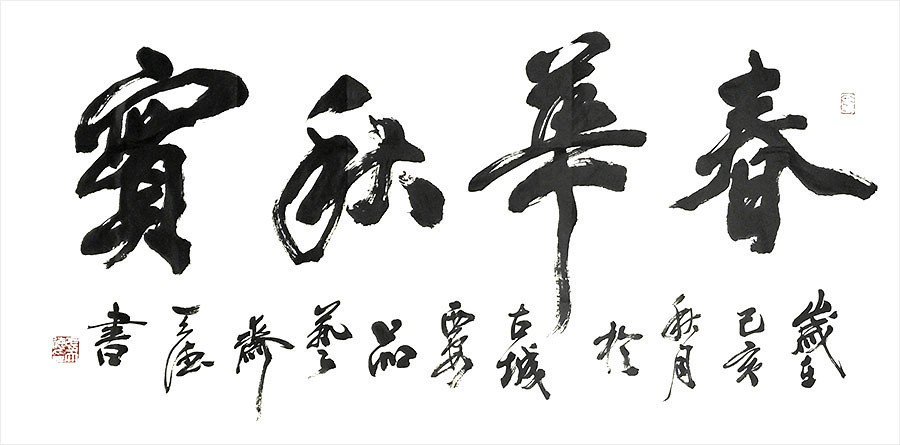 春華秋實
歲在己亥秋月於古城西安品藝齋德書